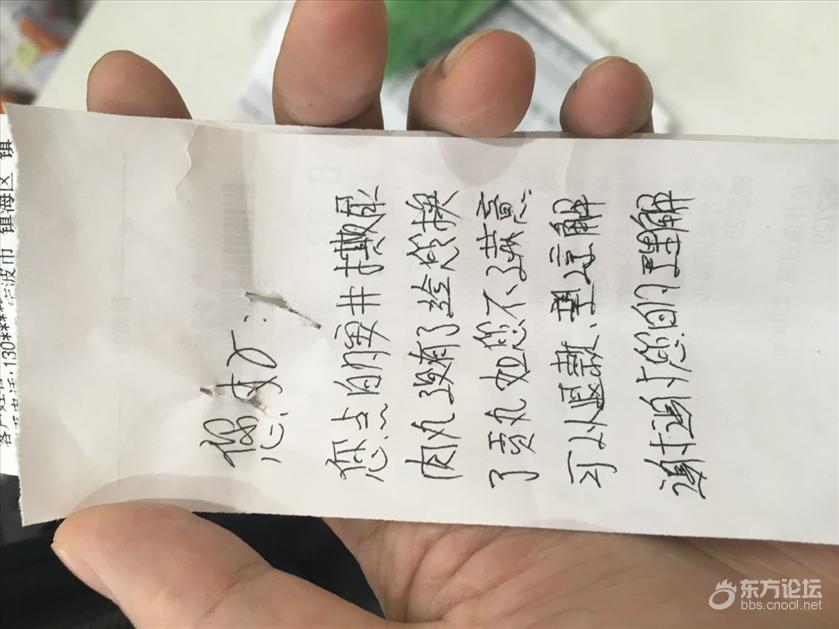 您好:
您点的撒尿
肉丸没有了给您换
了贡丸如您不满意
可以退款、解
谢谢您的理解
130****
波市 镇海区 镇
东方论坛
bbs.cnool.net